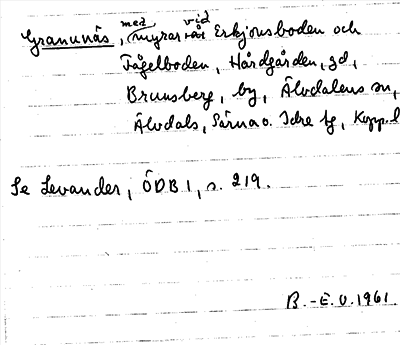 Granunäs, med myrar vid Erkjonsboden och
Fågelboden, Hårdgården, gd,
Brunsberg, by, Älvdalens sn,
Älvdals, Särna o. Idre tg, Kopp. l
Se Levander, ÖDB 1, s. 219.
B.-E. U. 1961